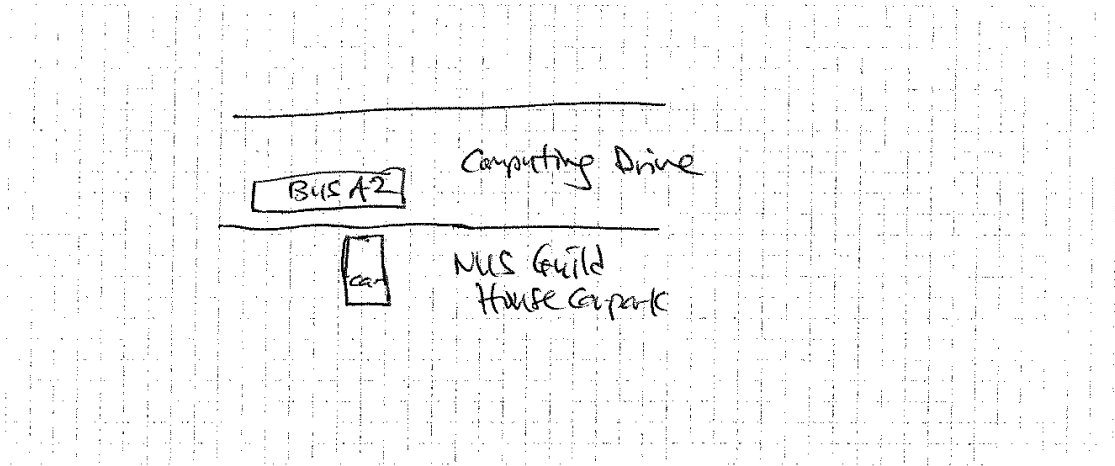 Computing Drive
BUS A2
NUS Guild
House Carpark
car